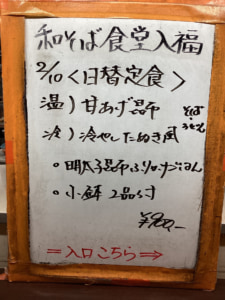 和そば食堂入福
2/10 <日替定食>
温) 甘あげ昆布
そば・うどん
冷) 冷やしたぬき風
○ 明太子昆布ふりかけごはん
○ 小鉢 2品付
¥900-
=入口こちら⇒